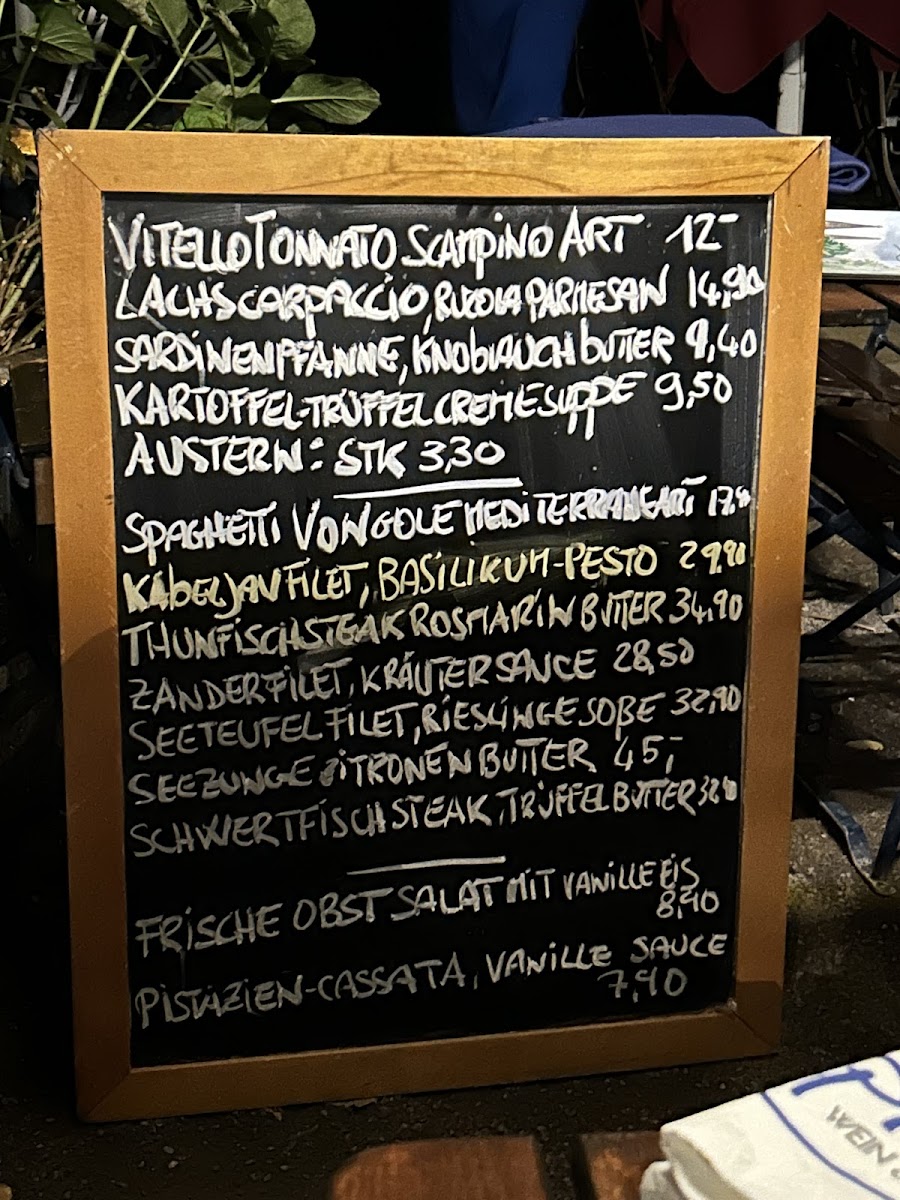 VITELLO TONNATO SCAMPINO ART 12-
LACHSCARPACCIO, RUCOLA PARMESAN 14,90
SARDINENPFANNE, KNOBLAUCHBUTTER 9,40
KARTOFFEL-TRÜFFELCREMESUPPE 9,50
AUSTERN: STK 3,30
SPAGHETTI VONGOLE MEDITERRANEART
KABELJAUFILET, BASILIKUM-PESTO 29,90
THUNFISCHSTEAK ROSMARIN BUTTER 34,90
ZANDERFILET, KRÄUTERSAUCE 28,50
SEETEUFELFILET, RIESLINGESOßE 32,90
SEEZUNGE ZITRONENBUTTER 45,-
SCHWERTFISCHSTEAK, TRÜFFELBUTTER 32,90
FRISCHE OBSTSALAT MIT VANILLE EIS
8,40
PISTAZIEN-CASSATA, VANILLE SAUCE
7,90
WEIN